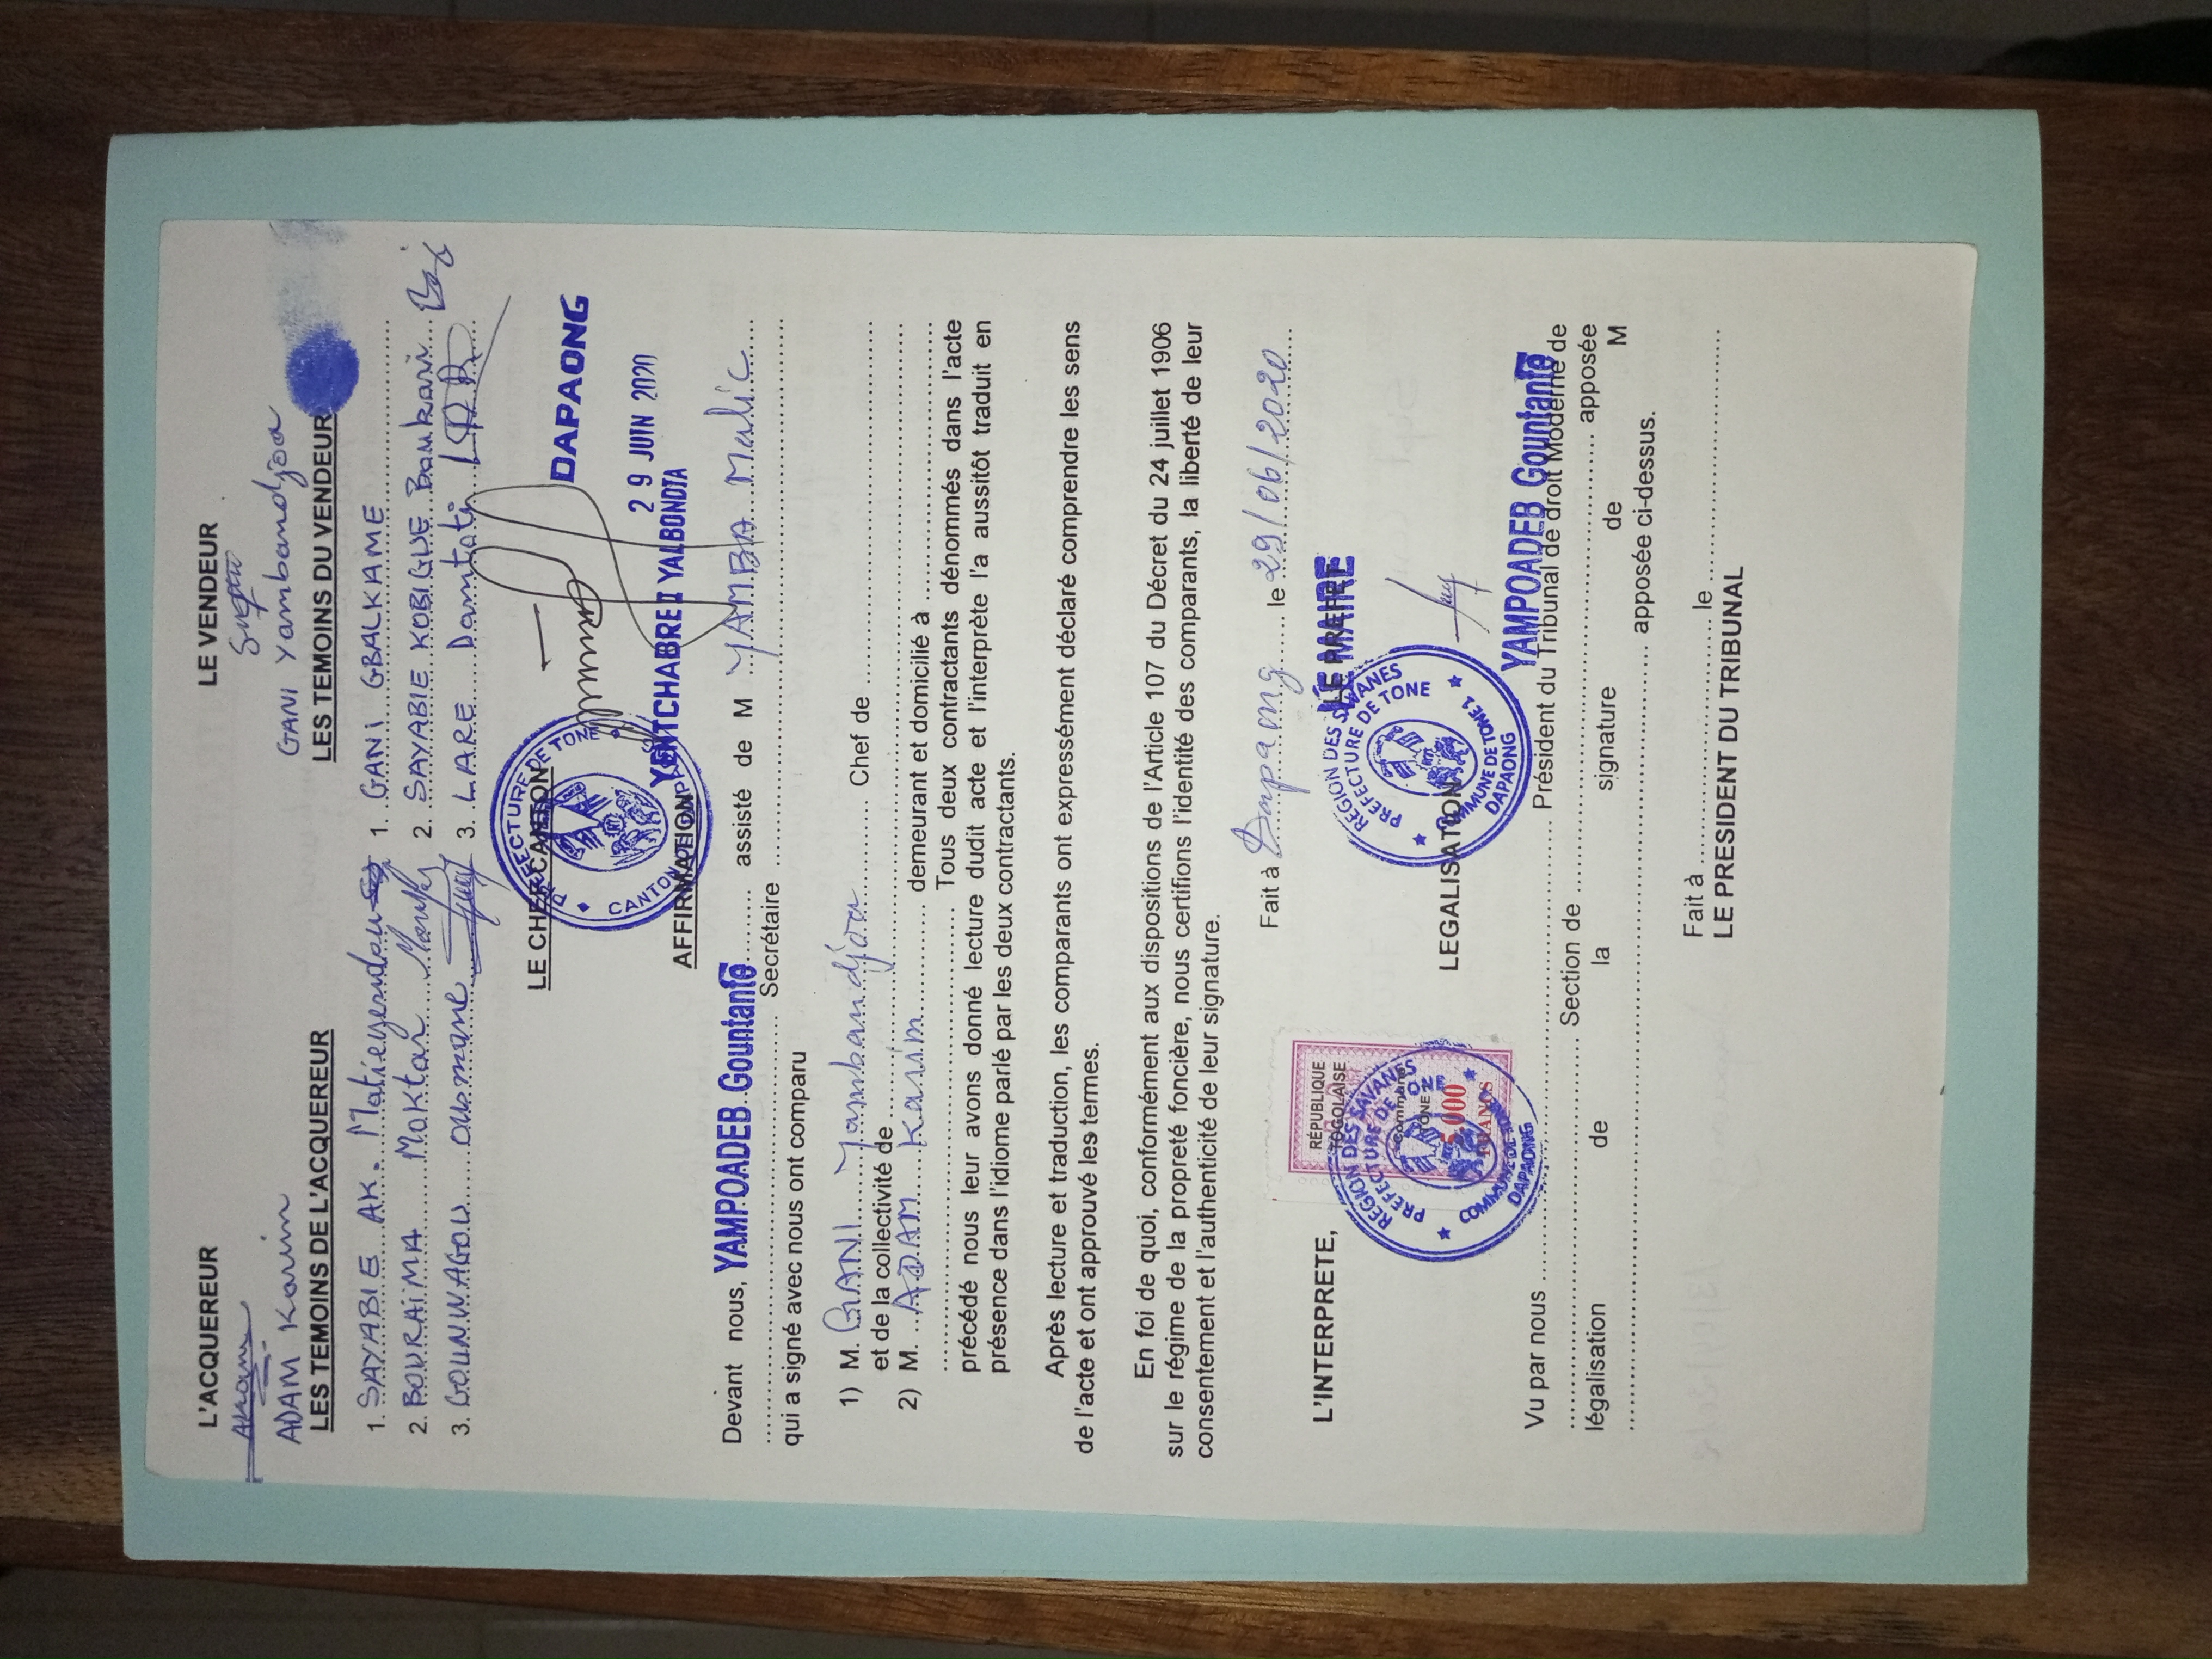 L'ACQUEREUR LE VENDEUR
ADAM Karim GANI Yambandjoa
LES TEMOINS DE L'ACQUEREUR LES TEMOINS DU VENDEUR
1. SAYABIE AK. Matieyendou 1. GANI GBALKAME
2. BOURAIMA Moktar 2. SAYABIE KOBIGUE Boukari
3. GOUNWAGOU ousmane 3. LARE Damtoti
LE CHEF CANTON
DAPAONG
PREFECTURE DE TONE
CANTON
29 JUIN 2020
YENTCHABRE II YALBONDJA
AFFIRMATION
Devant nous, YAMPOADEB Gountante assisté de M YAMBA Malic
Secrétaire
qui a signé avec nous ont comparu
1) M. GANI Yambandjoa Chef de
et de la collectivité de
2) M. ADAM Karim demeurant et domicilié à
Tous deux contractants dénommés dans l'acte
précédé nous leur avons donné lecture dudit acte et l'interprète l'a aussitôt traduit en
présence dans l'idiome parlé par les deux contractants.
Après lecture et traduction, les comparants ont expressément déclaré comprendre les sens
de l'acte et ont approuvé les termes.
En foi de quoi, conformément aux dispositions de l'Article 107 du Décret du 24 juillet 1906
sur le régime de la propreté foncière, nous certifions l'identité des comparants, la liberté de leur
consentement et l'authenticité de leur signature.
Fait à Dapaong le 29/06/2020
L'INTERPRETE, LE PREFET
LE MAIRE
RÉPUBLIQUE
TOGOLAISE
Commune
TONE 1
5.000
FRANCS
REGION DES SAVANES
PREFECTURE DE TONE
COMMUNE DE TONE 1
DAPAONG
REGION DES SAVANES
PREFECTURE DE TONE
COMMUNE DE TONE 1
DAPAONG
LEGALISATION
YAMPOADEB Gountante
Vu par nous Président du Tribunal de droit Moderne de
Section de apposée
légalisation de la signature de M
apposée ci-dessus.
Fait à le
LE PRESIDENT DU TRIBUNAL